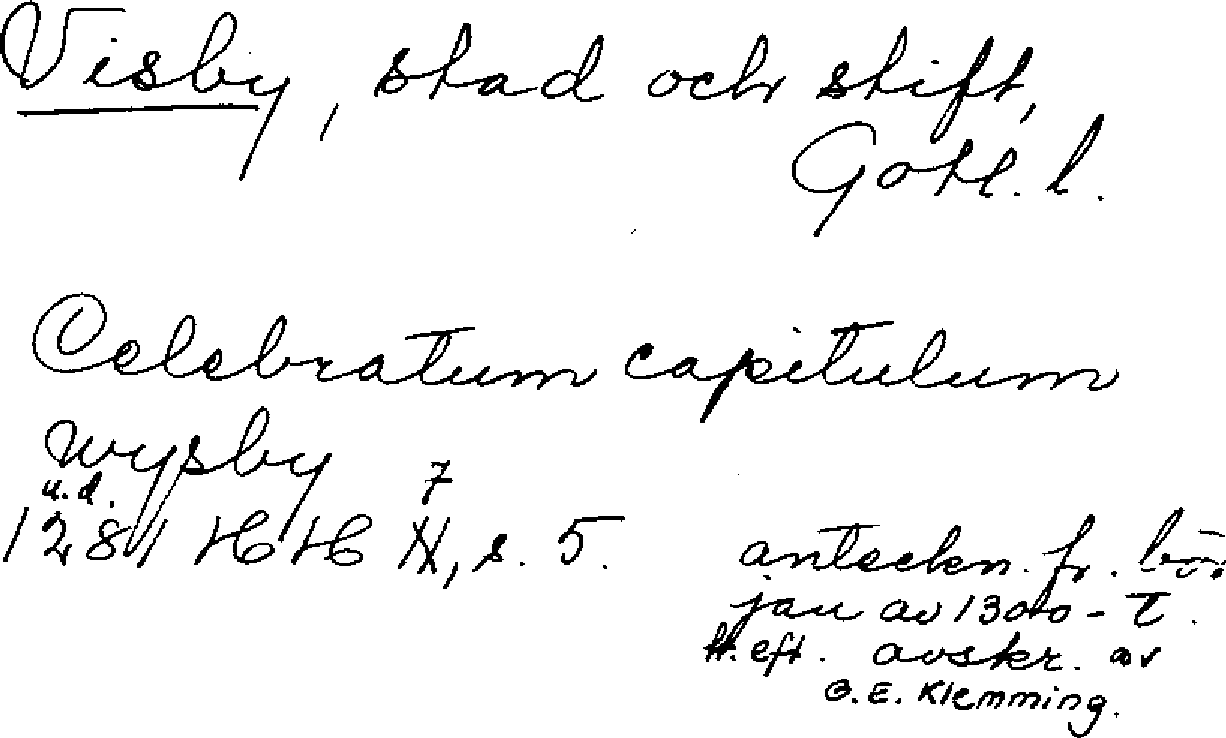 Visby, stad och stift,
Gotl. l.
Celebratum capitulum
wysby
u.d. 7
1281 HH , s. 5.
anteckn. fr. bör
jan av 1300-t.
tr. eft. avskr. av
G. E. Klemming.